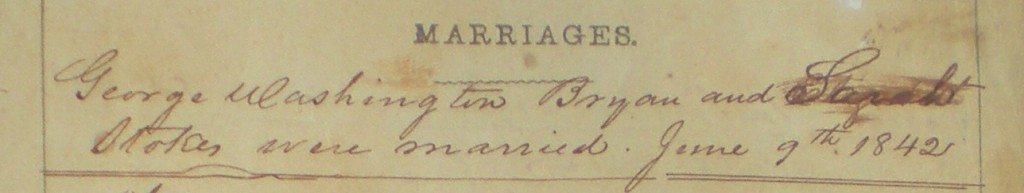 MARRIAGES.
George Washington Bryan and
Stokes were married. June 9th. 1842